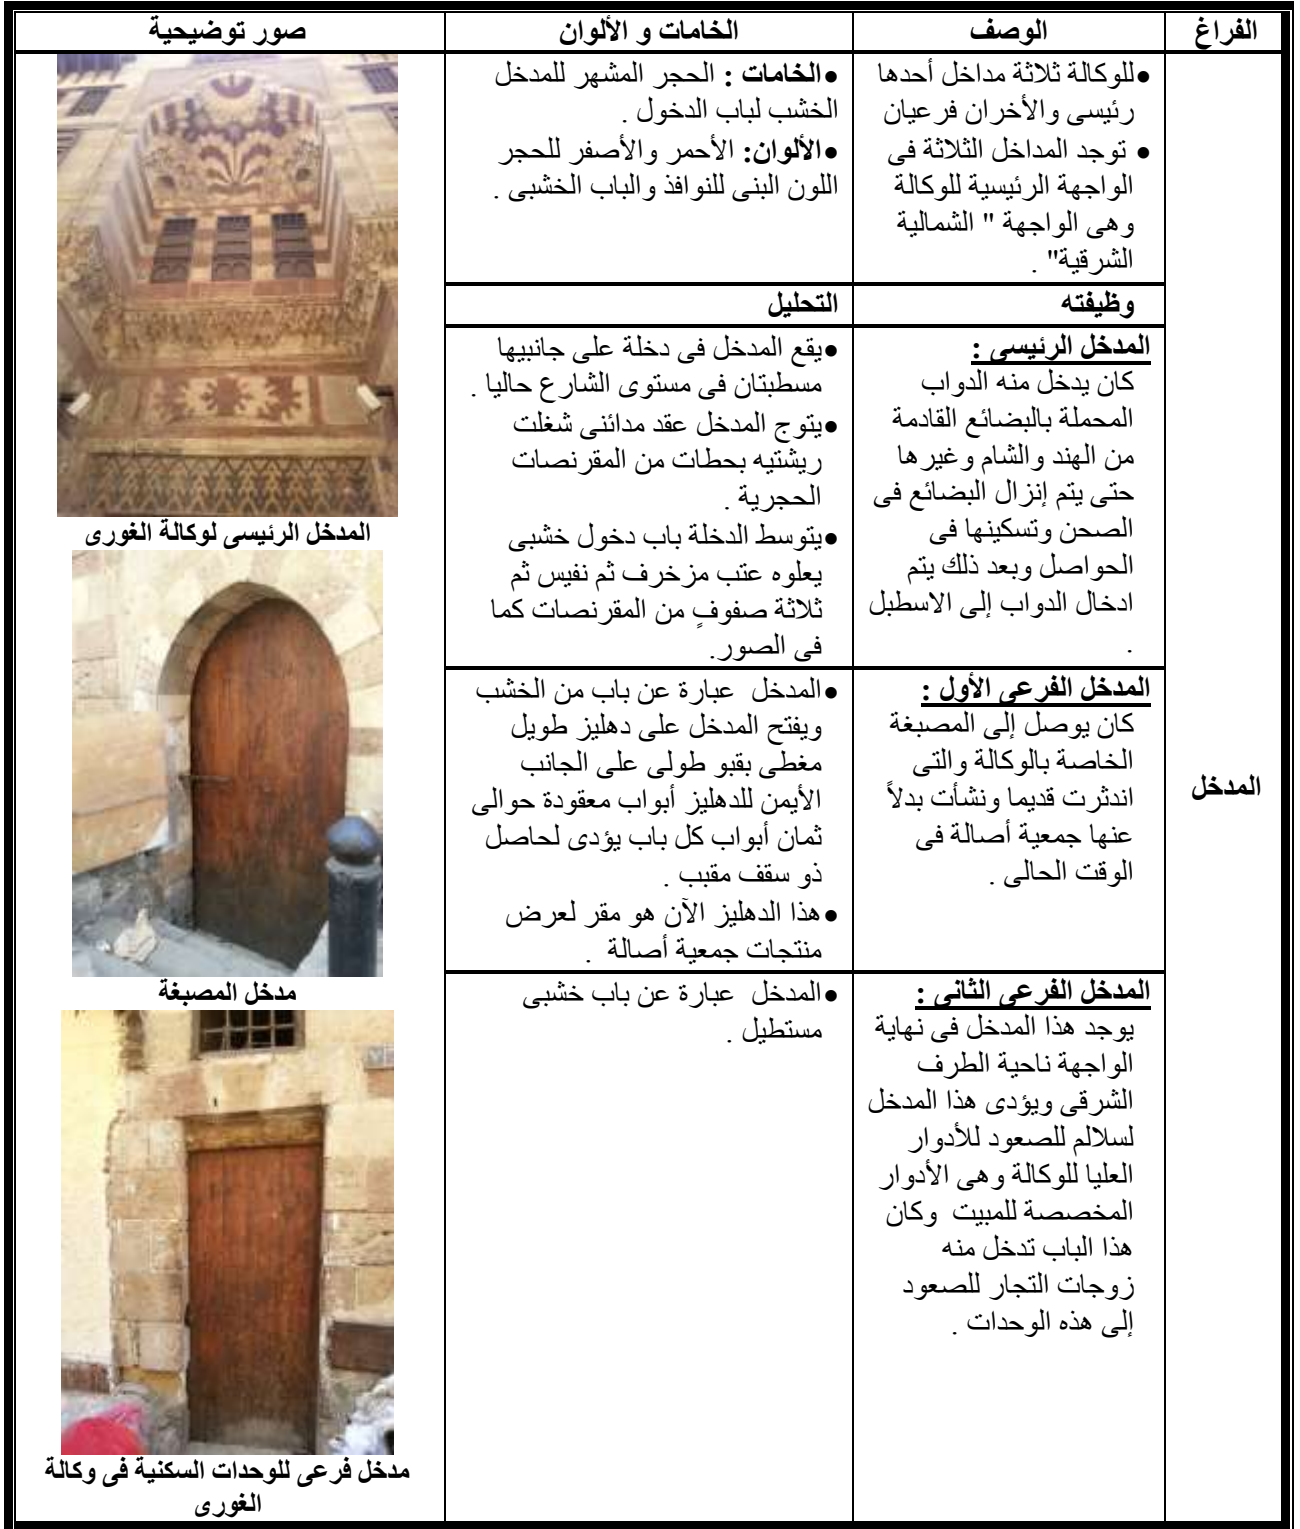 الفراغ	الوصف	الخامات و الألوان	صور توضيحية
المدخل
•للوكالة ثلاثة مداخل أحدها
رئيسى والأخران فرعيان
• توجد المداخل الثلاثة فى
الواجهة الرئيسية للوكالة
وهى الواجهة " الشمالية
الشرقية" .
•الخامات : الحجر المشهر للمدخل
الخشب لباب الدخول .
•الألوان: الأحمر والأصفر للحجر
اللون البنى للنوافذ والباب الخشبى .
وظيفته	التحليل
المدخل الرئيسى :
كان يدخل منه الدواب
المحملة بالبضائع القادمة
من الهند والشام وغيرها
حتى يتم إنزال البضائع فى
الصحن وتسكينها فى
الحواصل وبعد ذلك يتم
ادخال الدواب إلى الاسطبل
.
•يقع المدخل فى دخلة على جانبيها
مسطبتان فى مستوى الشارع حاليا .
•يتوج المدخل عقد مدائنى شغلت
ريشتيه بحطات من المقرنصات
الحجرية .
•يتوسط الدخلة باب دخول خشبى
يعلوه عتب مزخرف ثم نفيس ثم
ثلاثة صفوفٍ من المقرنصات كما
فى الصور.
المدخل الفرعى الأول :
كان يوصل إلى المصبغة
الخاصة بالوكالة والتى
اندثرت قديما ونشأت بدلاً
عنها جمعية أصالة فى
الوقت الحالى .
•المدخل عبارة عن باب من الخشب
ويفتح المدخل على دهليز طويل
مغطى بقبو طولى على الجانب
الأيمن للدهليز أبواب معقودة حوالى
ثمان أبواب كل باب يؤدى لحاصل
ذو سقف مقبب .
•هذا الدهليز الآن هو مقر لعرض
منتجات جمعية أصالة .
المدخل الفرعى الثانى :
يوجد هذا المدخل فى نهاية
الواجهة ناحية الطرف
الشرقى ويؤدى هذا المدخل
لسلالم للصعود للأدوار
العليا للوكالة وهى الأدوار
المخصصة للمبيت وكان
هذا الباب تدخل منه
زوجات التجار للصعود
إلى هذه الوحدات .
•المدخل عبارة عن باب خشبى
مستطيل .
المدخل الرئيسى لوكالة الغورى
مدخل المصبغة
مدخل فرعى للوحدات السكنية فى وكالة
الغورى